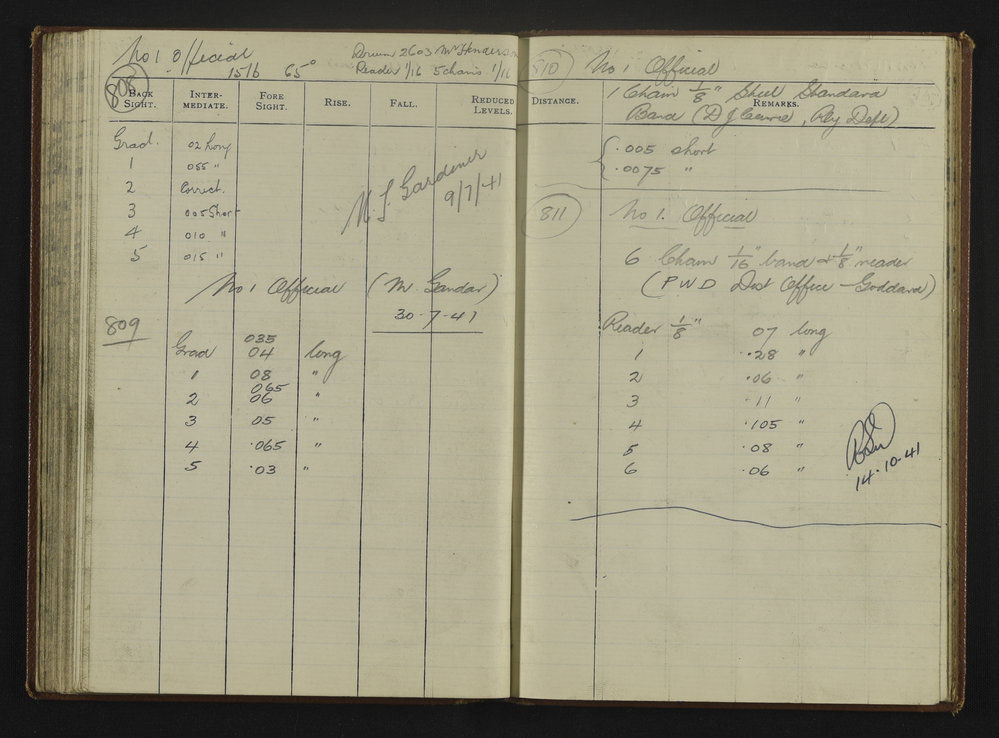 No 1 Official
15lb 65°
Drum 2603 Mr Henderson
Reader 1/16 5 chains 1/16
808
BACK SIGHT. INTER-MEDIATE. FORE SIGHT. RISE. FALL. REDUCED LEVELS.
Grad. 02 long
1 055 "
2 Correct.
3 005 Short
4 010 "
5 015 "
M. J. Gardiner
9/7/41
No 1 Official (Mr. Gandar)
30-7-41
809
035
Grad 04 long
1 08 "
065
2 06 "
3 05 "
4 .065 "
5 .03 "
810 No 1 Official
DISTANCE. REMARKS.
1 Chain 1/8" Steel Standard
Band (D J , Rly Dept)
.005 short
.0075 "
811 No 1. Official
6 Chain 1/16" band & 1/8" reader
(PWD Dist Office - Goddard)
Reader 1/8" 07 long
1 .28 "
2 .06 "
3 .11 "
4 .105 "
5 .08 "
6 .06 "
14.10.41